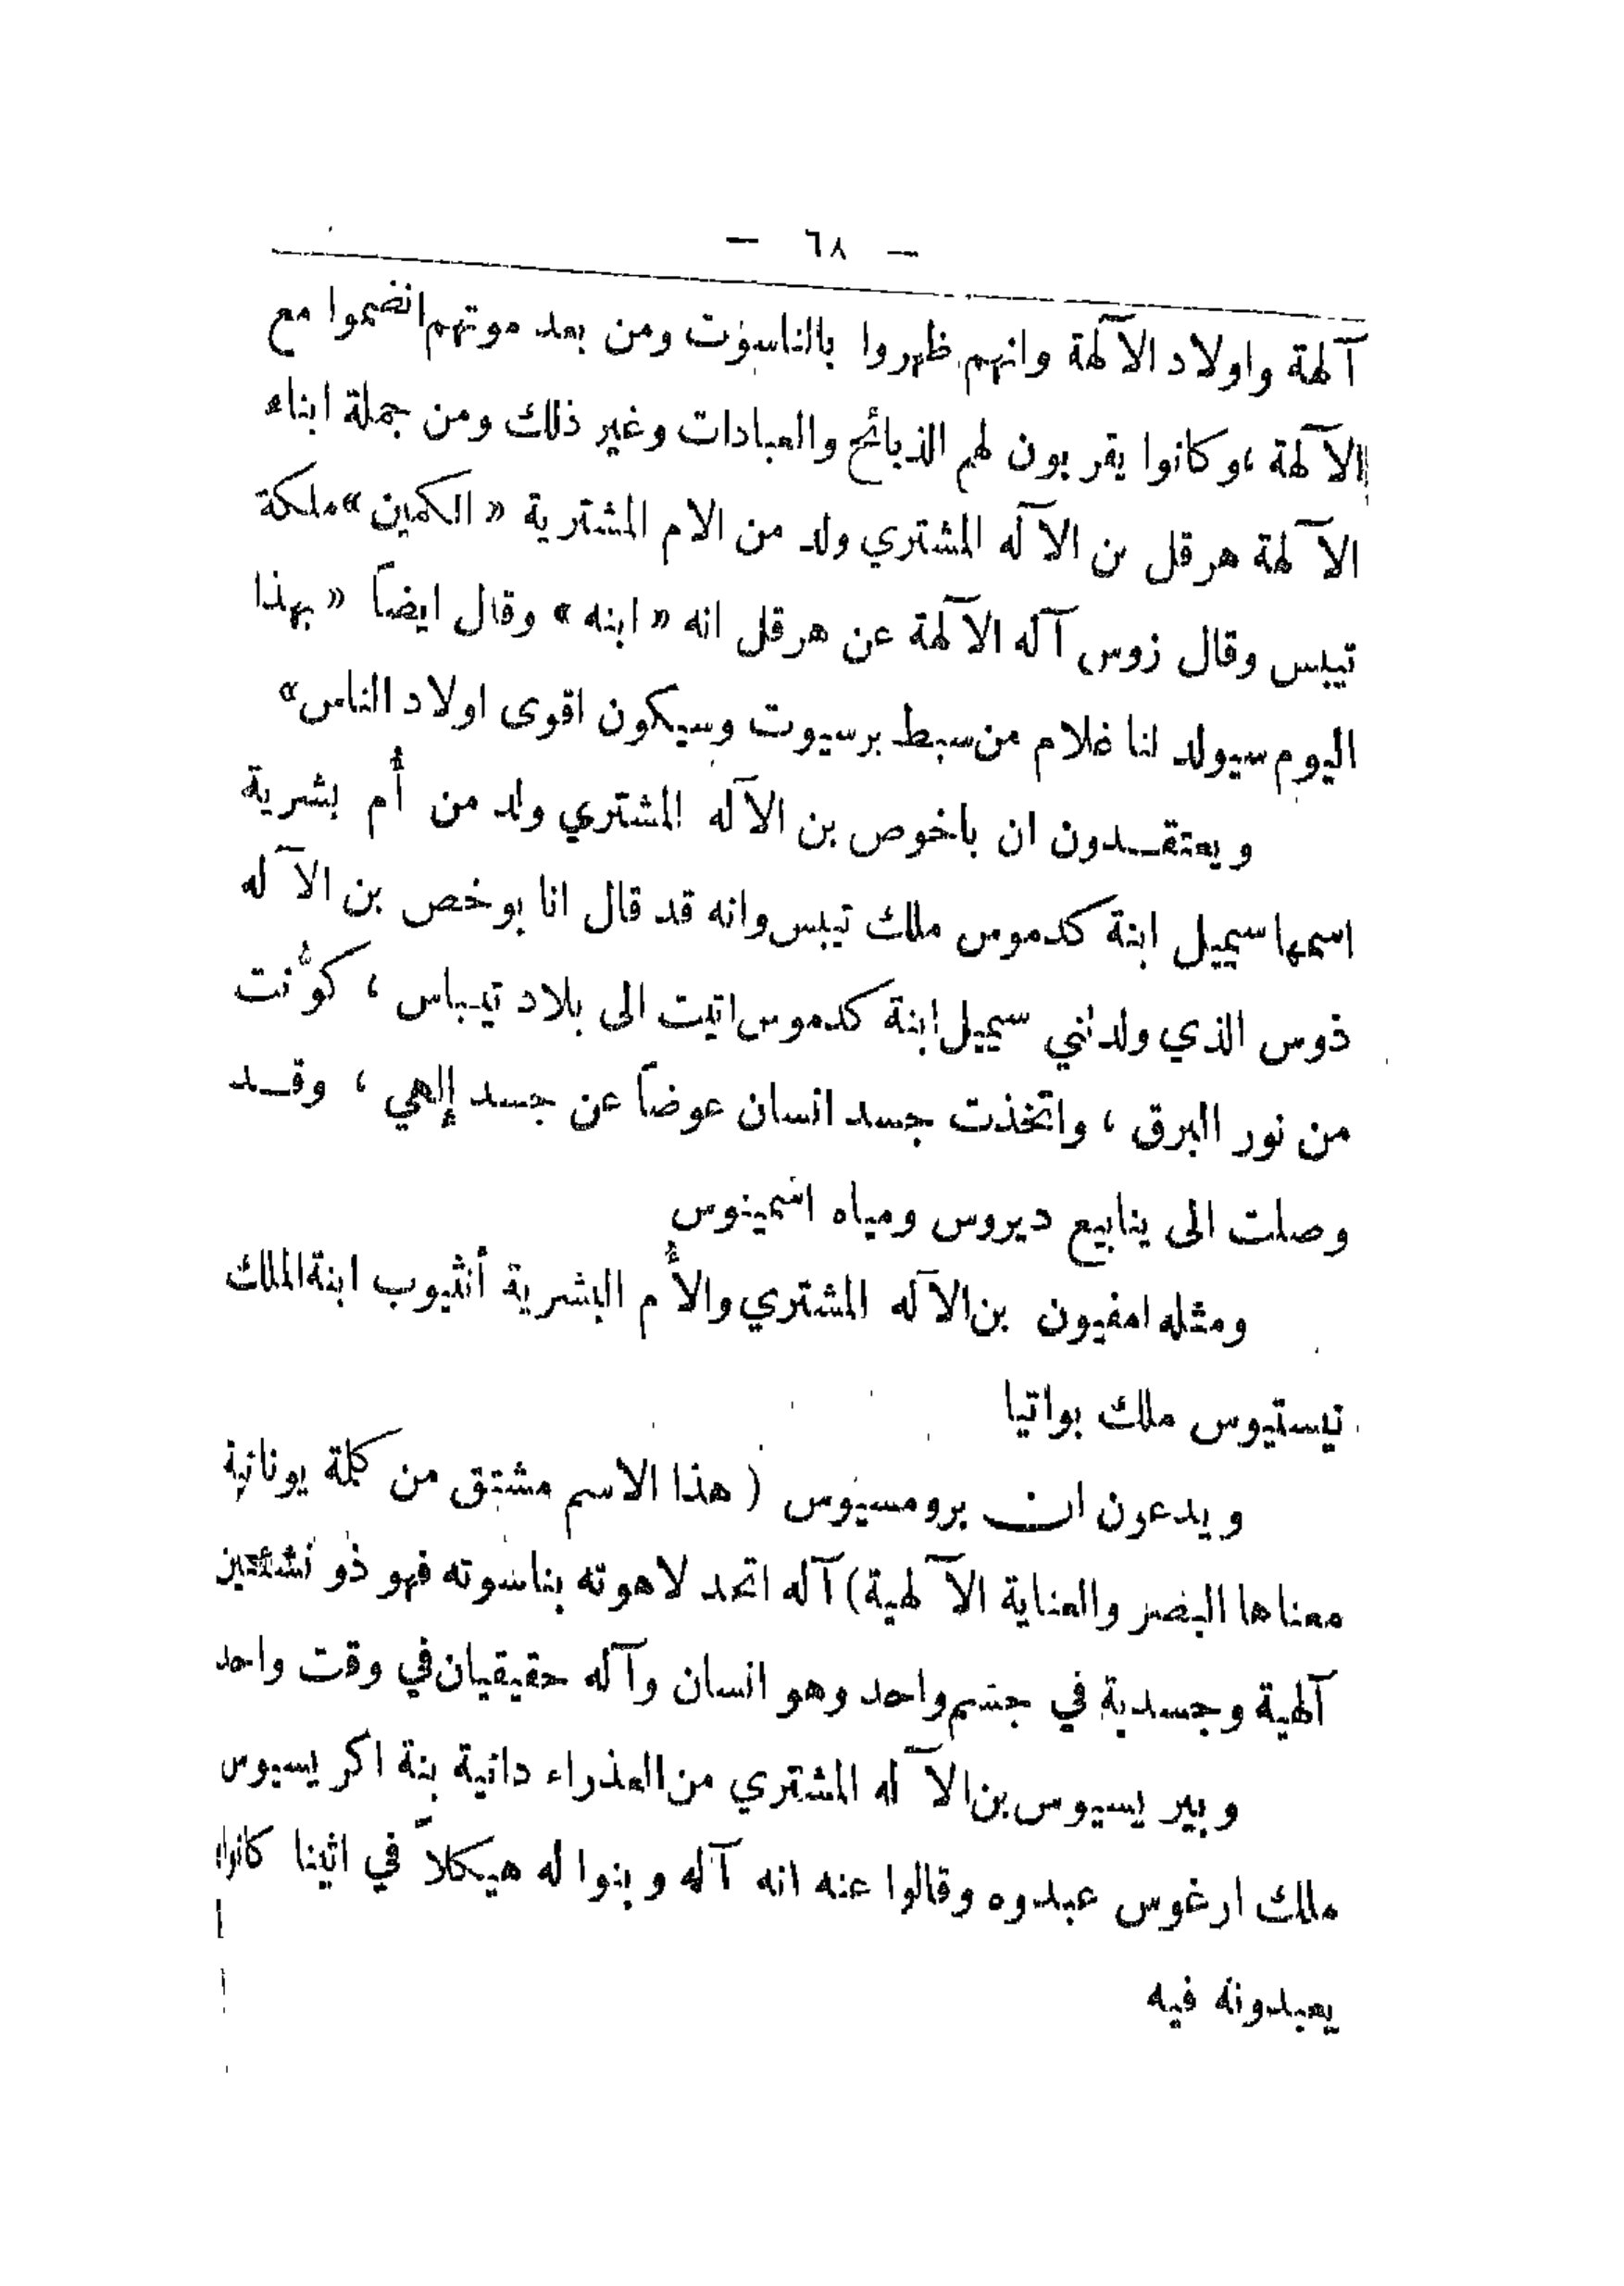 — ٦٨ —
آلهة واولاد الآلهة وانهم ظهروا بالناسوت ومن بعد موتهم انضموا مع
الآلهة ،وكانوا يقربون لهم الذبائح والعبادات وغير ذلك ومن جملة ابناء
الآلهة هرقل بن الآله المشتري ولد من الام المشترية « الكمين »ملكة
تيبس وقال زوس آله الآلهة عن هرقل انه « ابنه » وقال ايضاً « بهذا
اليوم سيولد لنا غلام من سبط برسيوت وسيكون اقوى اولاد الناس»
ويعتقدون ان باخوص بن الآله المشتري ولد من أم بشرية
اسمها سميل ابنة كدموس ملك تيبس وانه قد قال انا بوخص بن الآله
ذوس الذي ولدتني سميل ابنة كدموس اتيت الى بلاد تيباس ، كوُنت
من نور البرق ، واتخذت جسد انسان عوضاً عن جسد إلهي ، وقد
وصلت الى ينابيع ديروس ومياه اسمينوس
ومثله امفيون بن الآله المشتري والأم البشرية أنثيوب ابنة الملك
نيستيوس ملك بواتيا
ويدعون ان برومسيوس ( هذا الاسم مشتق من كلمة يونانية
معناها البصر والعناية الآلهية) آله اتحد لاهوته بناسوته فهو ذو نشئتين
آلهية وجسدية في جسم واحد وهو انسان وآله حقيقيان في وقت واحد
وبيريسيوس بن الآله المشتري من العذراء دانية بنة اكريسيوس
ملك ارغوس عبدوه وقالوا عنه انه آله وبنوا له هيكلاً في اثينا كانوا
يعبدونه فيه